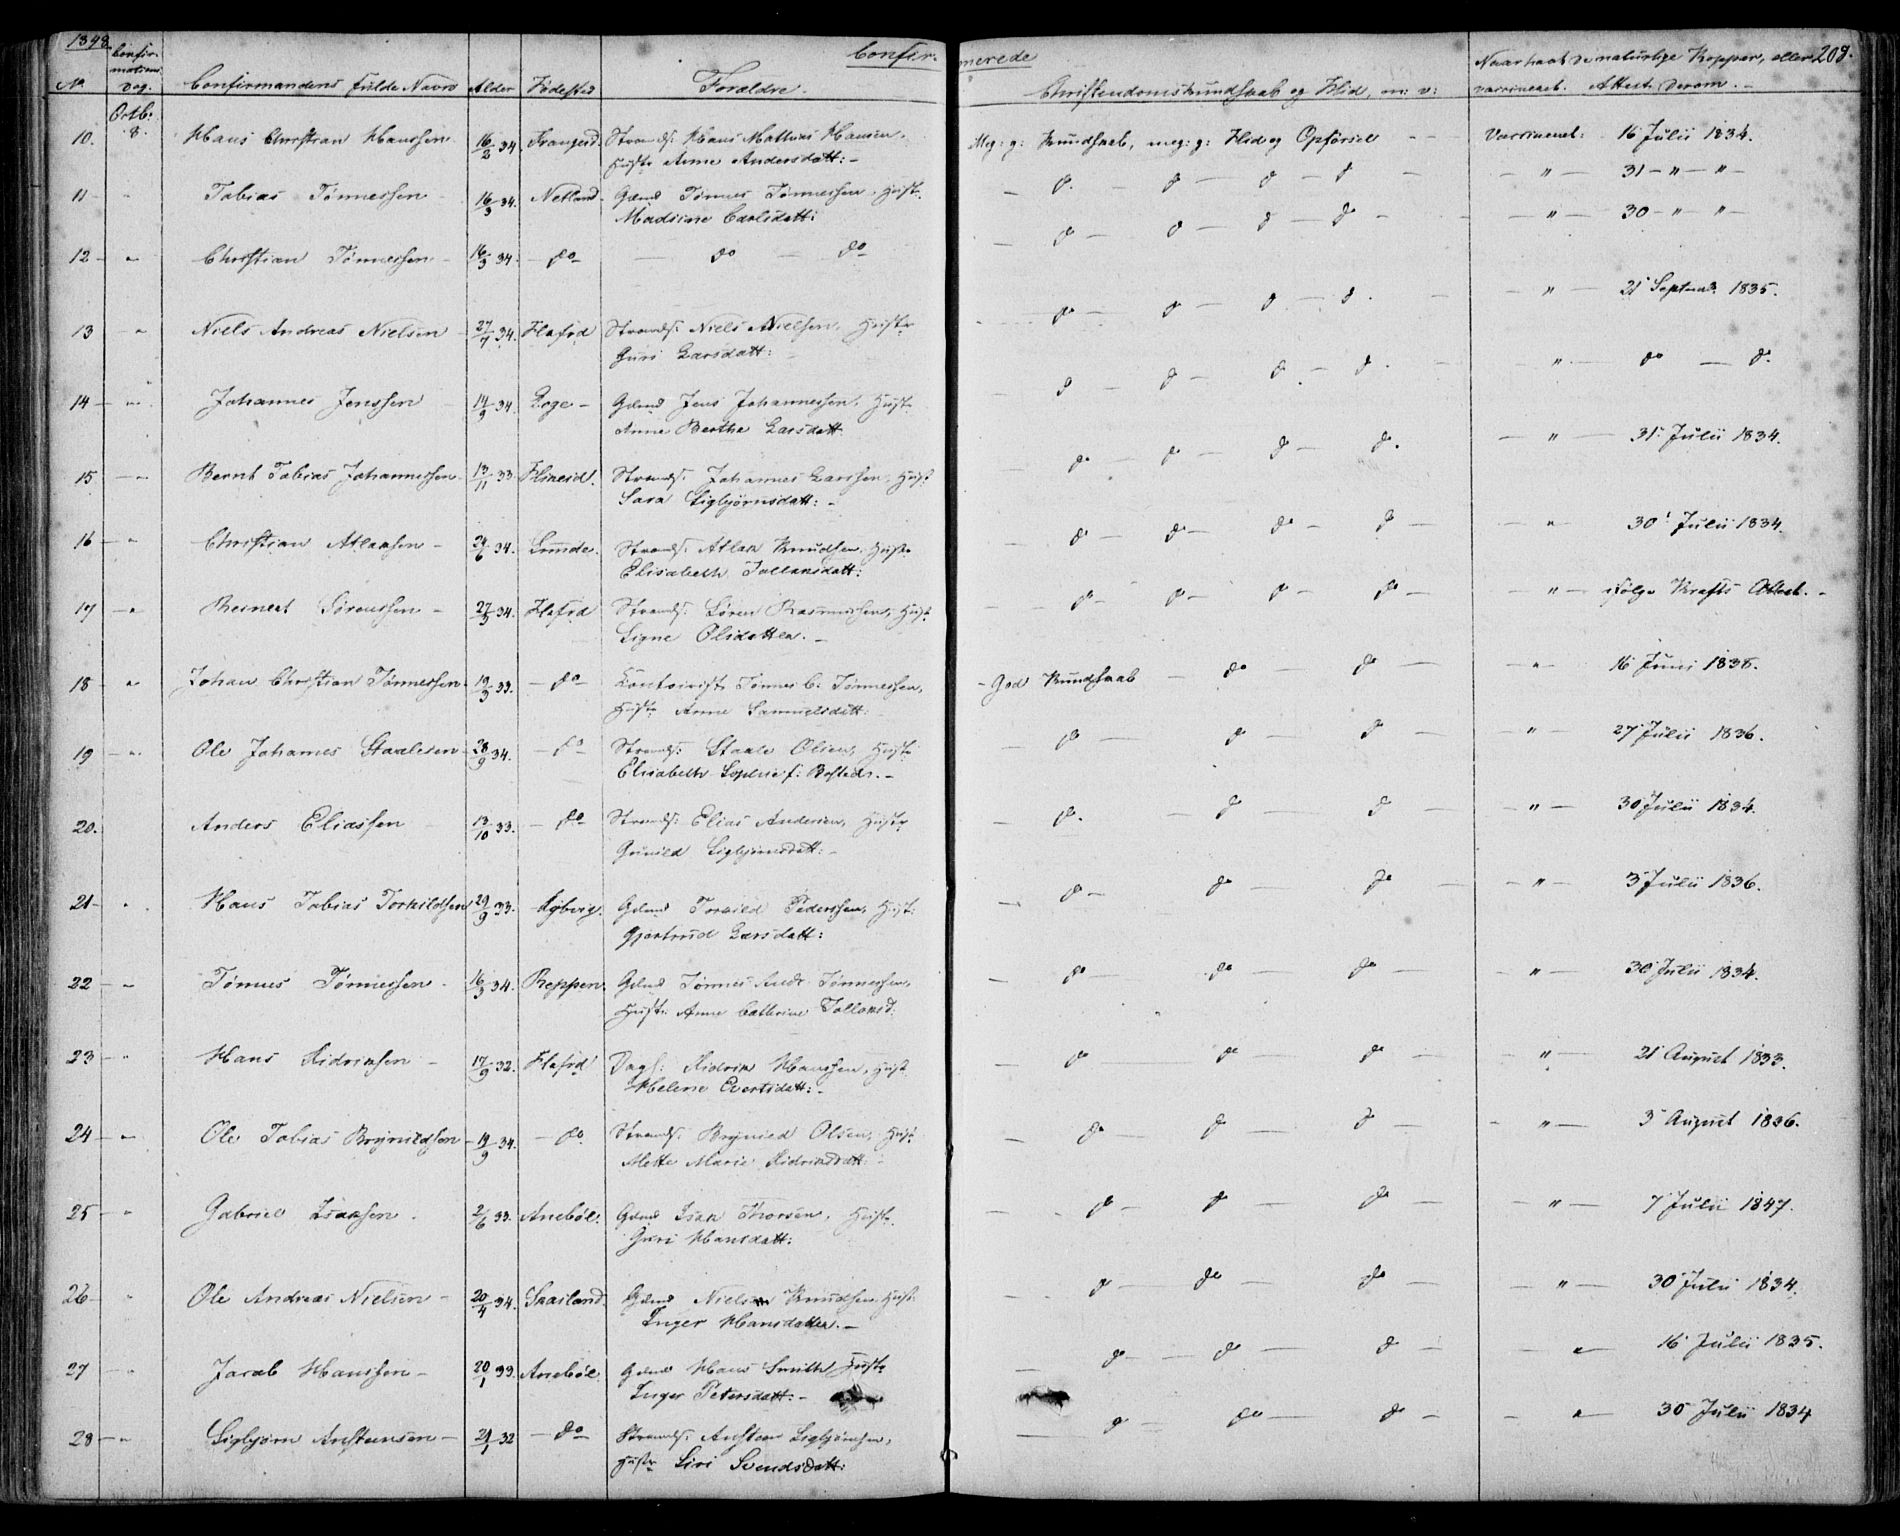 1848.
Confirmerede
208.
No
Confirmations Dag.
Confirmandens fulde Navn
Alder
Fødested
Forældre.
Christendomskundskab og Flid, m: v:
Naar havt de naturlige Kopper, eller vaccineret. Attest derom.
Octb: 8.
10. Hans Christian Hanssen 16/2 34. Strands: Hans Mathias Hansen, Hustr Anne Andersdatt: Meg: g: Kundskab, meg: g: Flid og Opførsel Vaccineret: 16 Julii 1834.
11 Tobias Tønnessen 16/3 34. Netland Gaard Tønnes Tønnessen, Hustr Madsine Carlsdatt: do do do do " 31 " "
12 " Christian Tønnessen 16/3 34. do do do do do do do " 30 " "
13 " Niels Andreas Nielsen 27/7 34. Flafød Strands: Niels Nielsen, Hustr Guri Larsdatt: do do do do " 21 Septemb. 1835.
14 " Johannes Jenssen 14/9 34. Roge Gaard Jens Johannessen, Hustr Anne Berthe Larsdatt do do do do " do do
15 " Bernt Tobias Johannessen 13/11 33. Strands: Johannes Larssen, Hustr Sara Sigbjørnsdatt: do do do do " 31 Julii 1834.
16 " Christian Atlaksen 24/6 34. Lunde. Strands: Atlak Knudsen, Hustr Elisabeth Tollaksdatt: do do do do " 30 Julii 1834.
17 " Reinert Sørenssen 27/3 34. Flafød Strands: Søren Rasmussen, Hustr Signe Olsdatter. do do do do " ifølge Krafts Attest.
18 " Johan Christian Tønnessen 19/3 33. do Contorist Tønnes C: Tønnessen, Hustr Anne Samuelsdatt: God Kundskab do do " 16 Juni 1838.
19 " Ole Johannes Staalesen 28/9 34. do Strands: Staale Olsen, Hustr Elisabeth Sophie f: do do do " 27 Julii 1836.
20. Anders Eliassen 13/10 33. do Strands: Elias Andersen, Hustr Gunild Sigbjørnsdatt: do do do " 30 Julii 1834.
21 " Hans Tobias Torkildsen 29/9 33. Gaard Torkild Pederssen, Hustr Gjertrud Larsdatt: do do do " 3 Julii 1836.
22 " Tønnes Tønnessen 16/3 34. Reppen Gaard Tønnes Andr. Tønnessen, Hustr Anne Cathrine Tollaksd: do do do " 30 Julii 1834.
23 " Hans Didriksen 17/9 32. Flafød Dags: Didrik Hanssen, Hustr Helene Evertsdatt: do do do " 21 August 1833.
24 " Ole Tobias Brynildsen 19/9 34. do Strands: Brynild Olsen, Hustr Mette Marie Didriksdatt: do do do " 3 August 1836.
25 " Gabriel Isaksen 2/6 33. Aneböe. Gaard Isak Thorsen, Hustr Guri Hansdatt: do do do " 7 Julii 1847.
26 " Ole Andreas Nielsen 20/4 34. Skailand. Gaard Niels Knudsen, Hustr Inger Hansdatter. do do do " 30 Julii 1834.
27 " Jacob Hanssen 20/1 33. Aneböe. Gaard Hans Smith Hustr Inger Petersdatt: do do do " 16 Julii 1835.
28 " Sigbjørn Anstensen 21/1 32 do Strands: Ansten Sigbjørnsen, Hustr Siri Svendsdatt: do do do " 30 Julii 1834